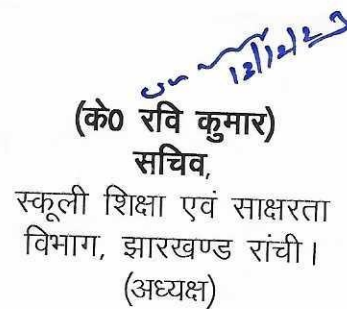 12/12/23
(के0 रवि कुमार)
सचिव,
स्कूली शिक्षा एवं साक्षरता
विभाग, झारखण्ड रांची।
(अध्यक्ष)